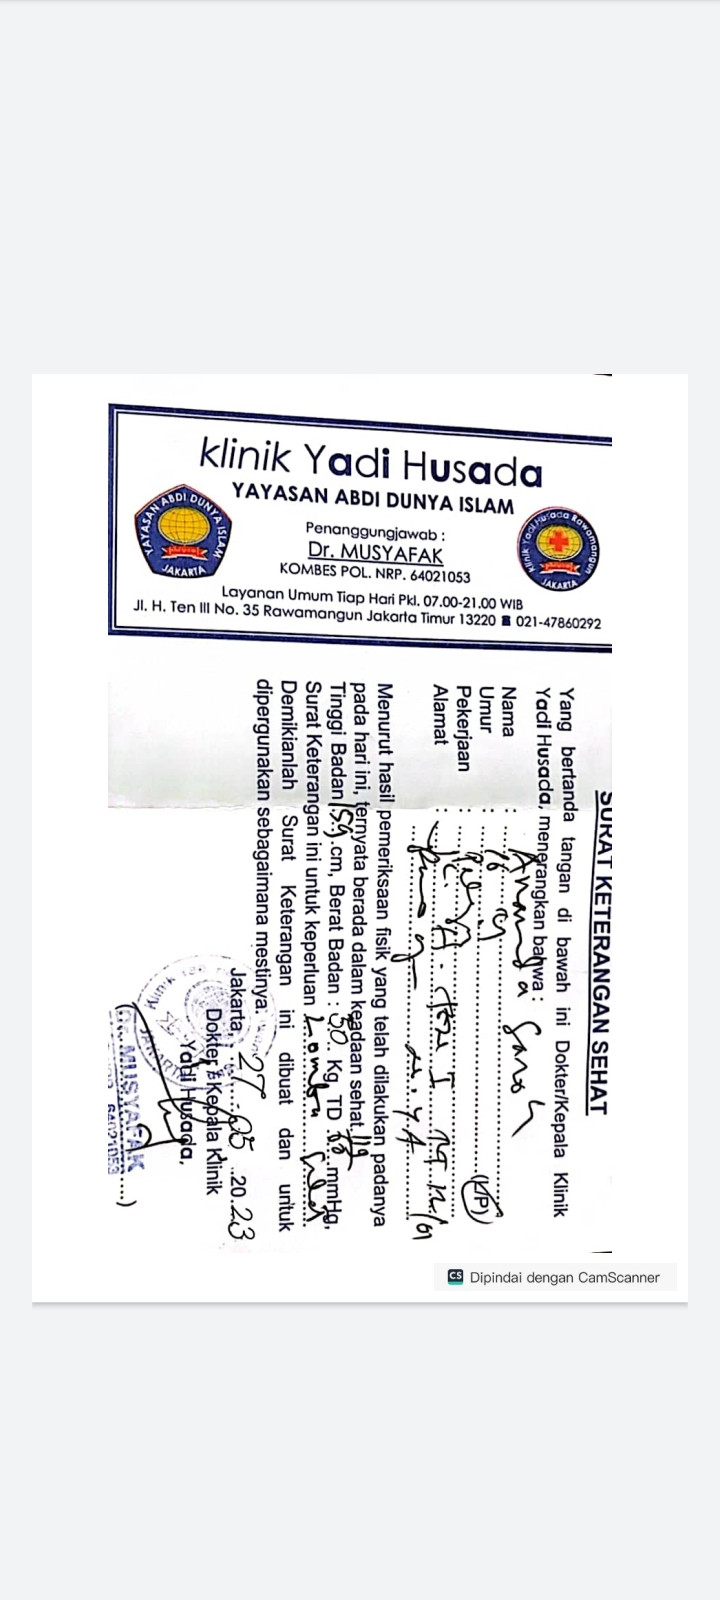 klinik Yadi Husada
YAYASAN ABDI DUNYA ISLAM
Penanggungjawab :
Dr. MUSYAFAK
KOMBES POL. NRP. 64021053
Layanan Umum Tiap Hari Pkl. 07.00-21.00 WIB
Jl. H. Ten III No. 35 Rawamangun Jakarta Timur 13220 ☎ 021-47860292
YAYASAN ABDI DUNYA ISLAM
JAKARTA
Klinik Yadi Husada Rawamangun
JAKARTA
SURAT KETERANGAN SEHAT
Yang bertanda tangan di bawah ini Dokter/Kepala Klinik
Yadi Husada, menerangkan bahwa :
Nama : Ananda Sarah
Umur : 16
Pekerjaan :
Alamat :
Menurut hasil pemeriksaan fisik yang telah dilakukan padanya
pada hari ini, ternyata berada dalam keadaan sehat
Tinggi Badan 159 cm, Berat Badan : 50 Kg, TD mmHg,
Surat Keterangan ini untuk keperluan Lomba
Demikianlah Surat Keterangan ini dibuat dan untuk
dipergunakan sebagaimana mestinya.
Jakarta, 27 05 2023
Dokter / Kepala Klinik
Yadi Husada,
Dr. MUSYAFAK
64021053
CS Dipindai dengan CamScanner